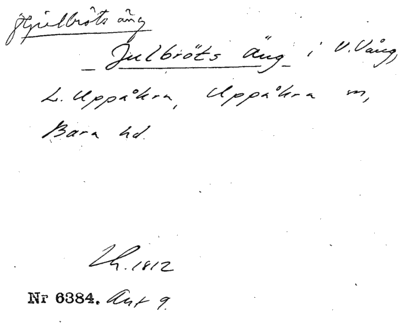 Hjulbröts äng
Julbröts Äng i V. Vång,
L. Uppåkra, Uppåkra m,
Bara hd.
Lh. 1812
Nr 6384. Ant 9.